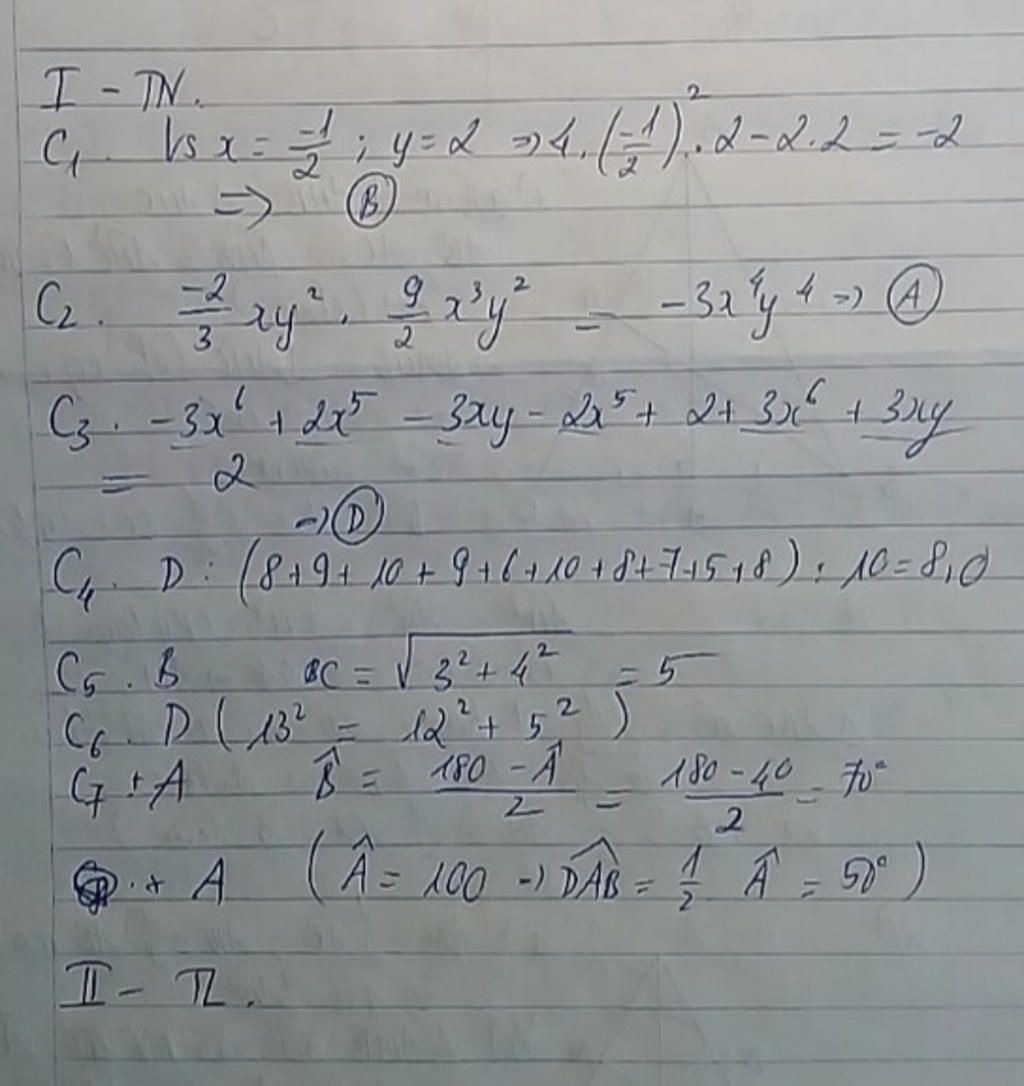 I - TN.
C1. Vs x = -1/2 ; y = 2 => 4.(-1/2)². 2 - 2.2 = -2
=> B
C2. -2/3 xy² . 9/2 x³y² = -3x⁴y⁴ => A
C3. -3x⁶ + 2x⁵ - 3xy - 2x⁵ + 2 + 3x⁶ + 3xy
= 2
-> D
C4. D : (8+9+10+9+6+10+8+7+5+8) : 10 = 8,0
C5. B BC = √(3² + 4²) = 5
C6. D ( 13² = 12² + 5² )
C7 + A B̂ = (180 - Â)/2 = (180 - 40)/2 = 70°
.+ A ( Â = 100 -> DÂB = 1/2 Â = 50° )
II - TL.